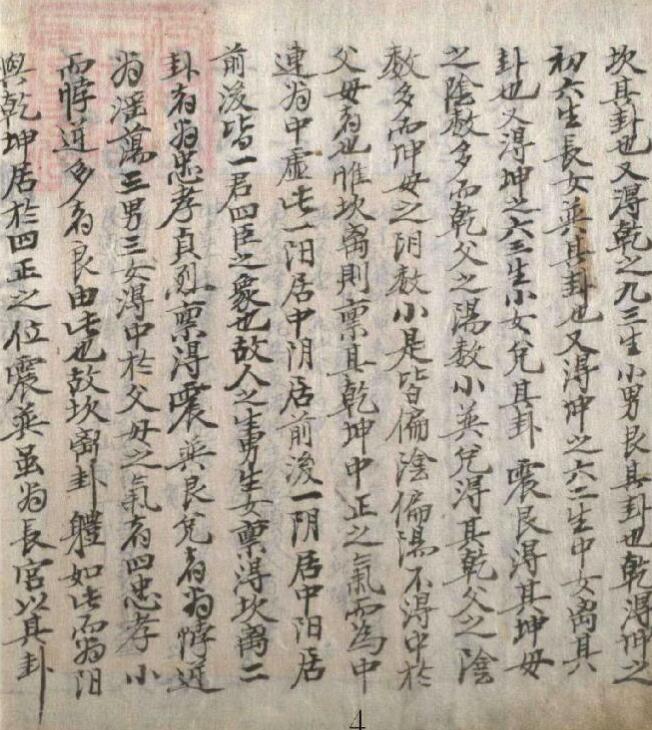 坎其卦也又得乾之九三生小男艮其卦也乾得坤之
初六生長女巽其卦也又得坤之六二生中女离其
卦也又得坤之六三生小女兌其卦震艮得其坤母
之陰数多而乾父之陽数小巽兌得其乾父之陰
数多而坤母之阴数小是皆偏陰偏陽不得中於
父母者也惟坎离則禀其乾坤中正之氣而為中
連为中虚此一阳居中阴居前後一阴居中阳居
前後皆一君四臣之象也故人之生男生女禀得坎离二
卦者为忠孝貞烈禀得震巽艮兌者为悖逆
为淫蕩三男三女得中於父母之氣者四忠孝小
而悖逆多者良由此也故坎离卦軆如此而为阳
與乾坤居於四正之位震巽虽为長宮以其卦
4